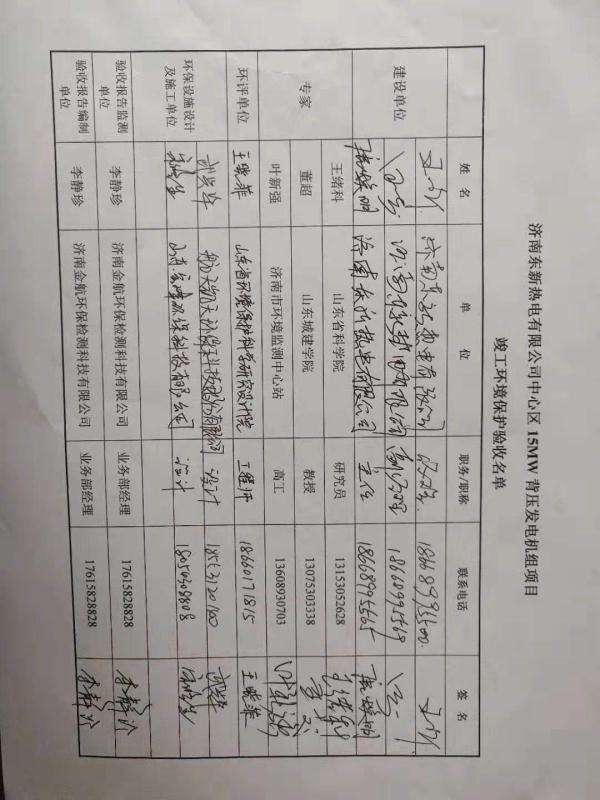 济南东新热电有限公司中心区 15MW 背压发电机组项目
竣工环境保护验收名单
姓 名 单 位 职务/职称 联系电话 签 名
建设单位
济南东新热电有限公司
济南东新热电有限公司 18668995569
济南东新热电有限公司 主任 18668995565
专家 王绪科 山东省科学院 研究员 13153052628
董超 山东城建学院 教授 13075303338
叶新强 济南市环境监测中心站 高工 13608930703 叶新强
环评单位 王晓菲 山东省环境保护科学研究设计院 工程师 18660171815 王晓菲
环保设施设计及施工单位 航天凯天环保科技股份有限公司 设计 18553120700
环保科技有限公司 设计
验收报告监测单位 李静珍 济南金航环保检测科技有限公司 业务部经理 17615828828 李静珍
验收报告编制单位 李静珍 济南金航环保检测科技有限公司 业务部经理 17615828828 李静珍